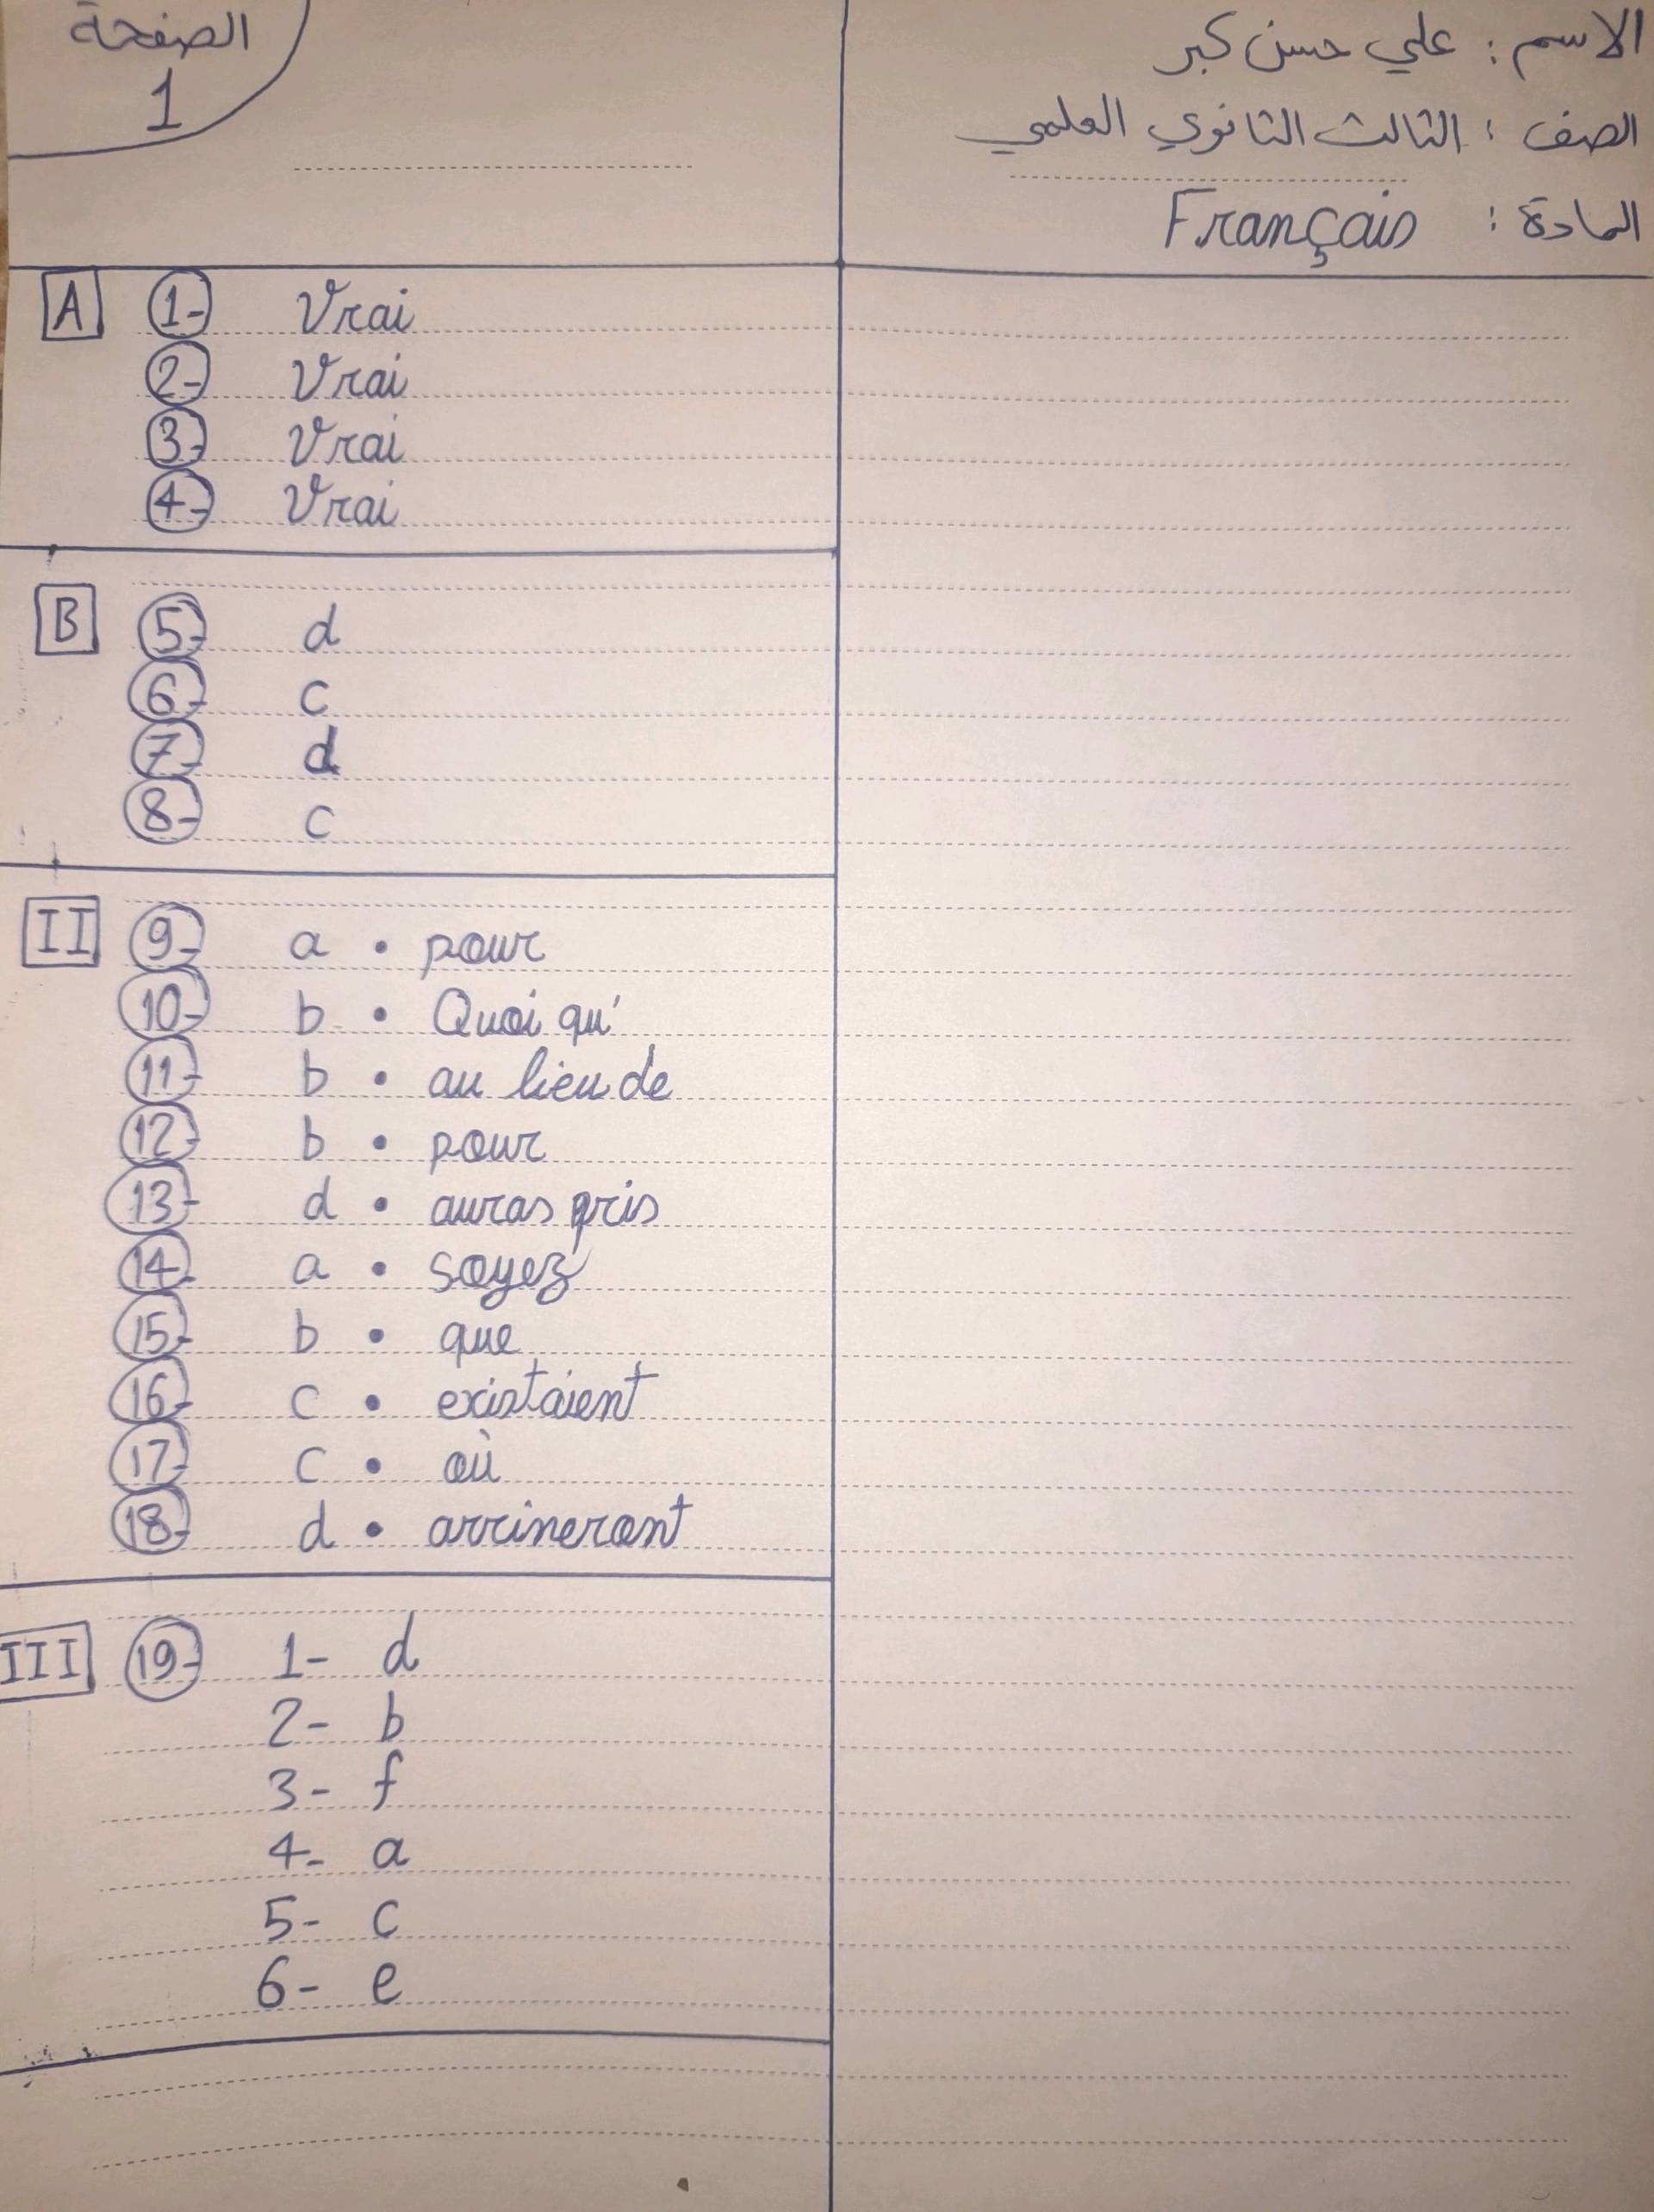 الصفحة
1
الاسم : علي حسن كبر
الصف : الثالث الثانوي العلمي
المادة : Français
A 1- Vrai
2- Vrai
3- Vrai
4- Vrai
B 5- d
6- c
7- d
8- c
II 9- a • pour
10- b • Quoi qu'
11- b • au lieu de
12- b • pour
13- d • auras pris
14- a • soyez
15- b • que
16- c • existaient
17- c • où
18- d • arriveront
III 19- 1- d
2- b
3- f
4- a
5- c
6- e